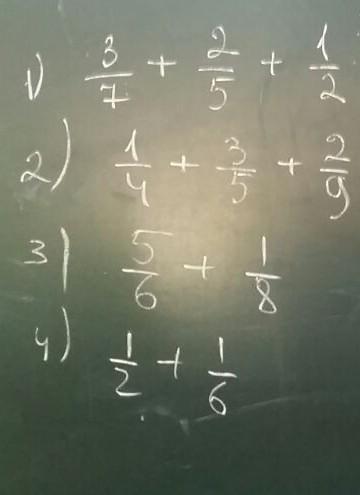 1) 3/7 + 2/5 + 1/2
2) 1/4 + 3/5 + 2/9
3) 5/6 + 1/8
4) 1/2 + 1/6